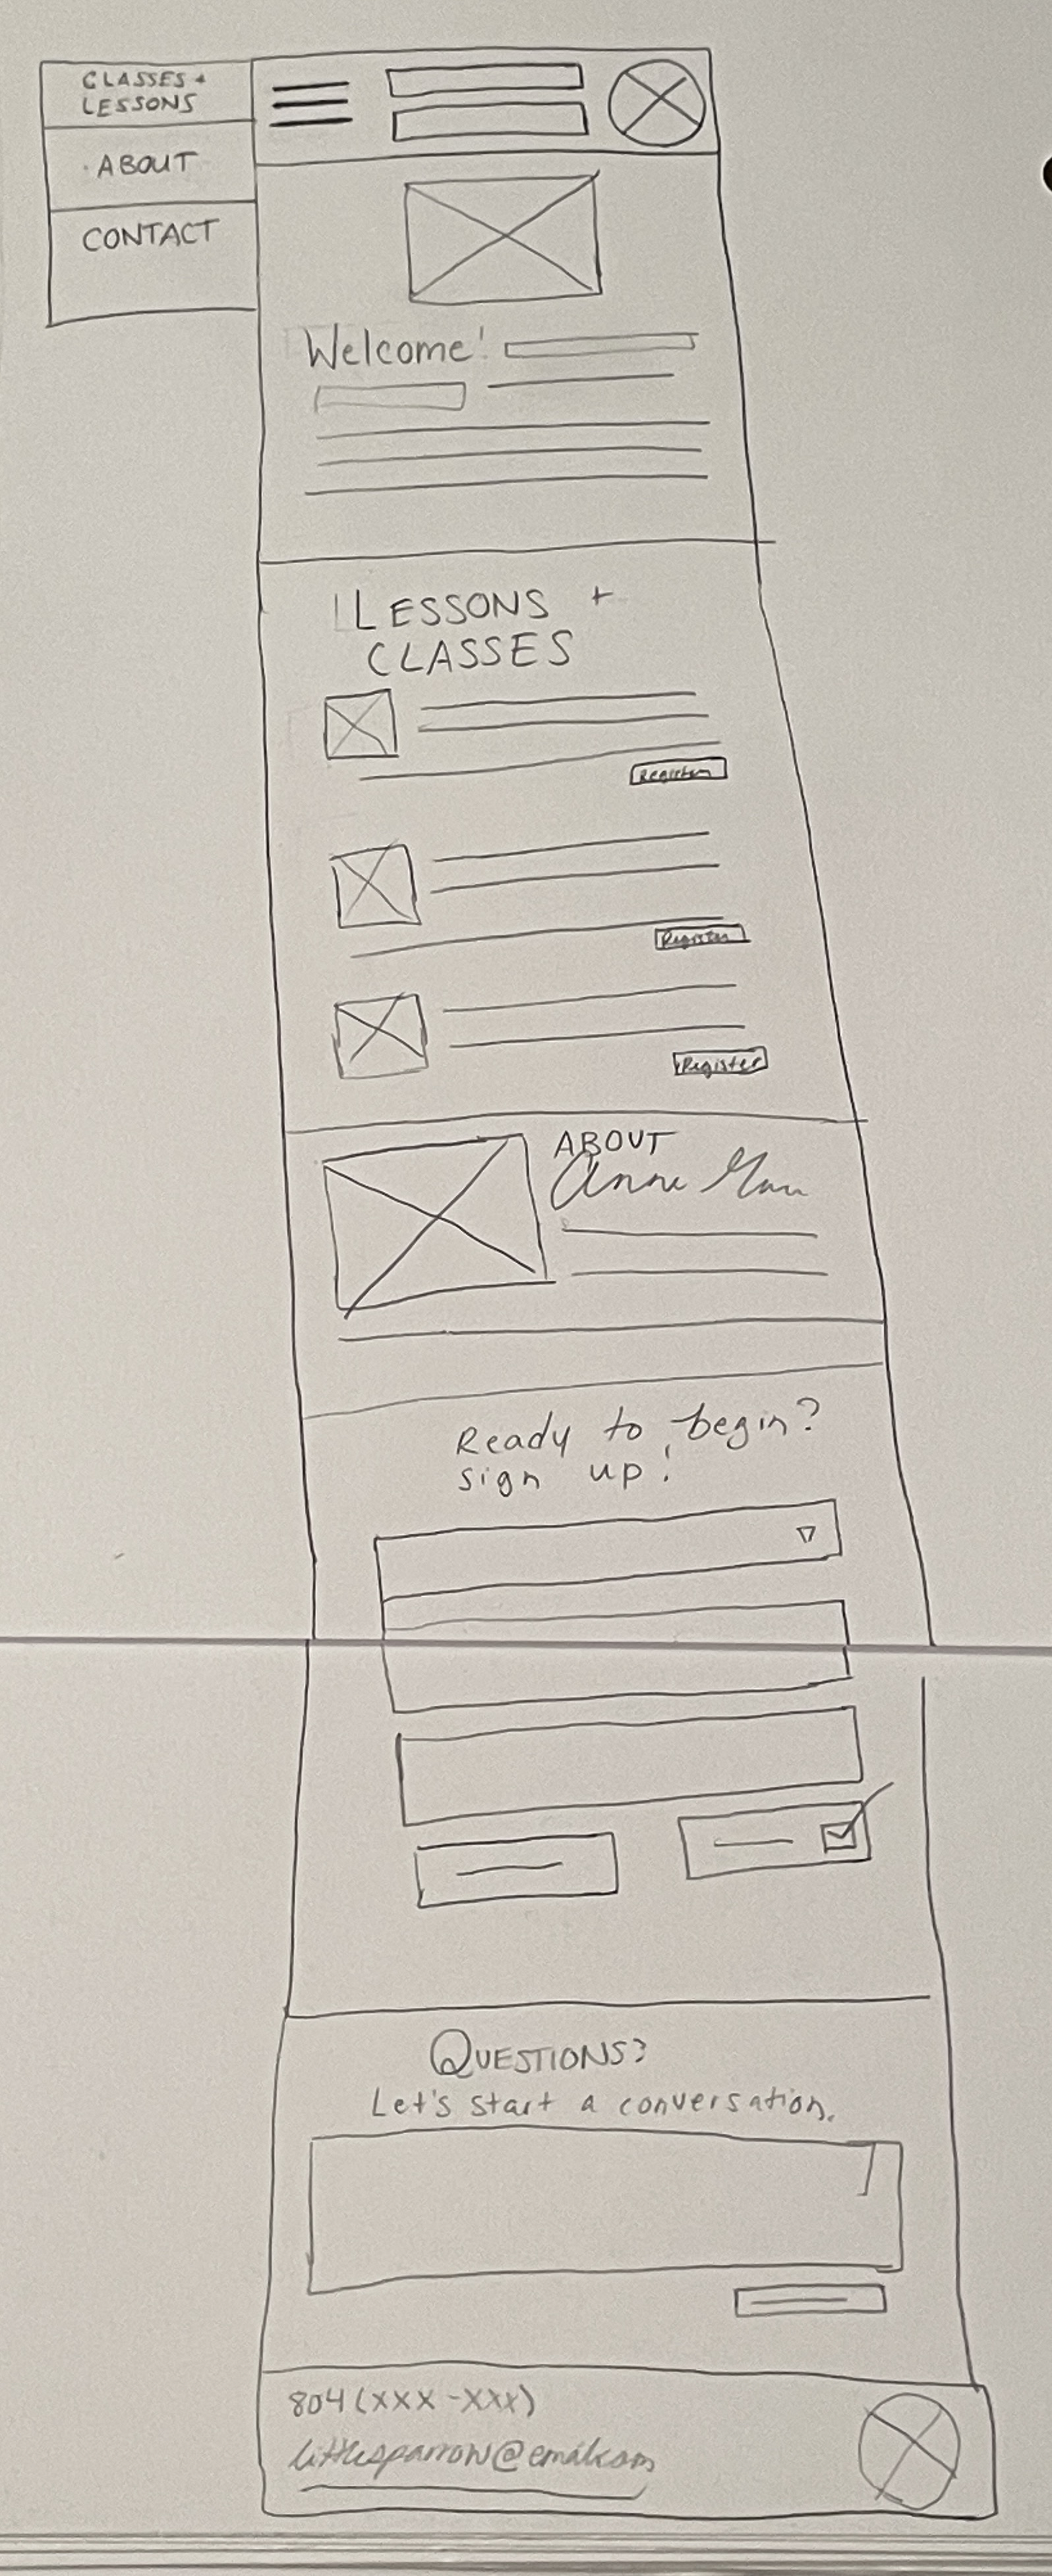 CLASSES +
LESSONS
ABOUT
CONTACT
Welcome!
LESSONS +
CLASSES
Register
Register
Register
ABOUT
Anne
Ready to begin?
sign up!
QUESTIONS?
Let's start a conversation.
804(XXX-XXX)
littlesparrow@email.com